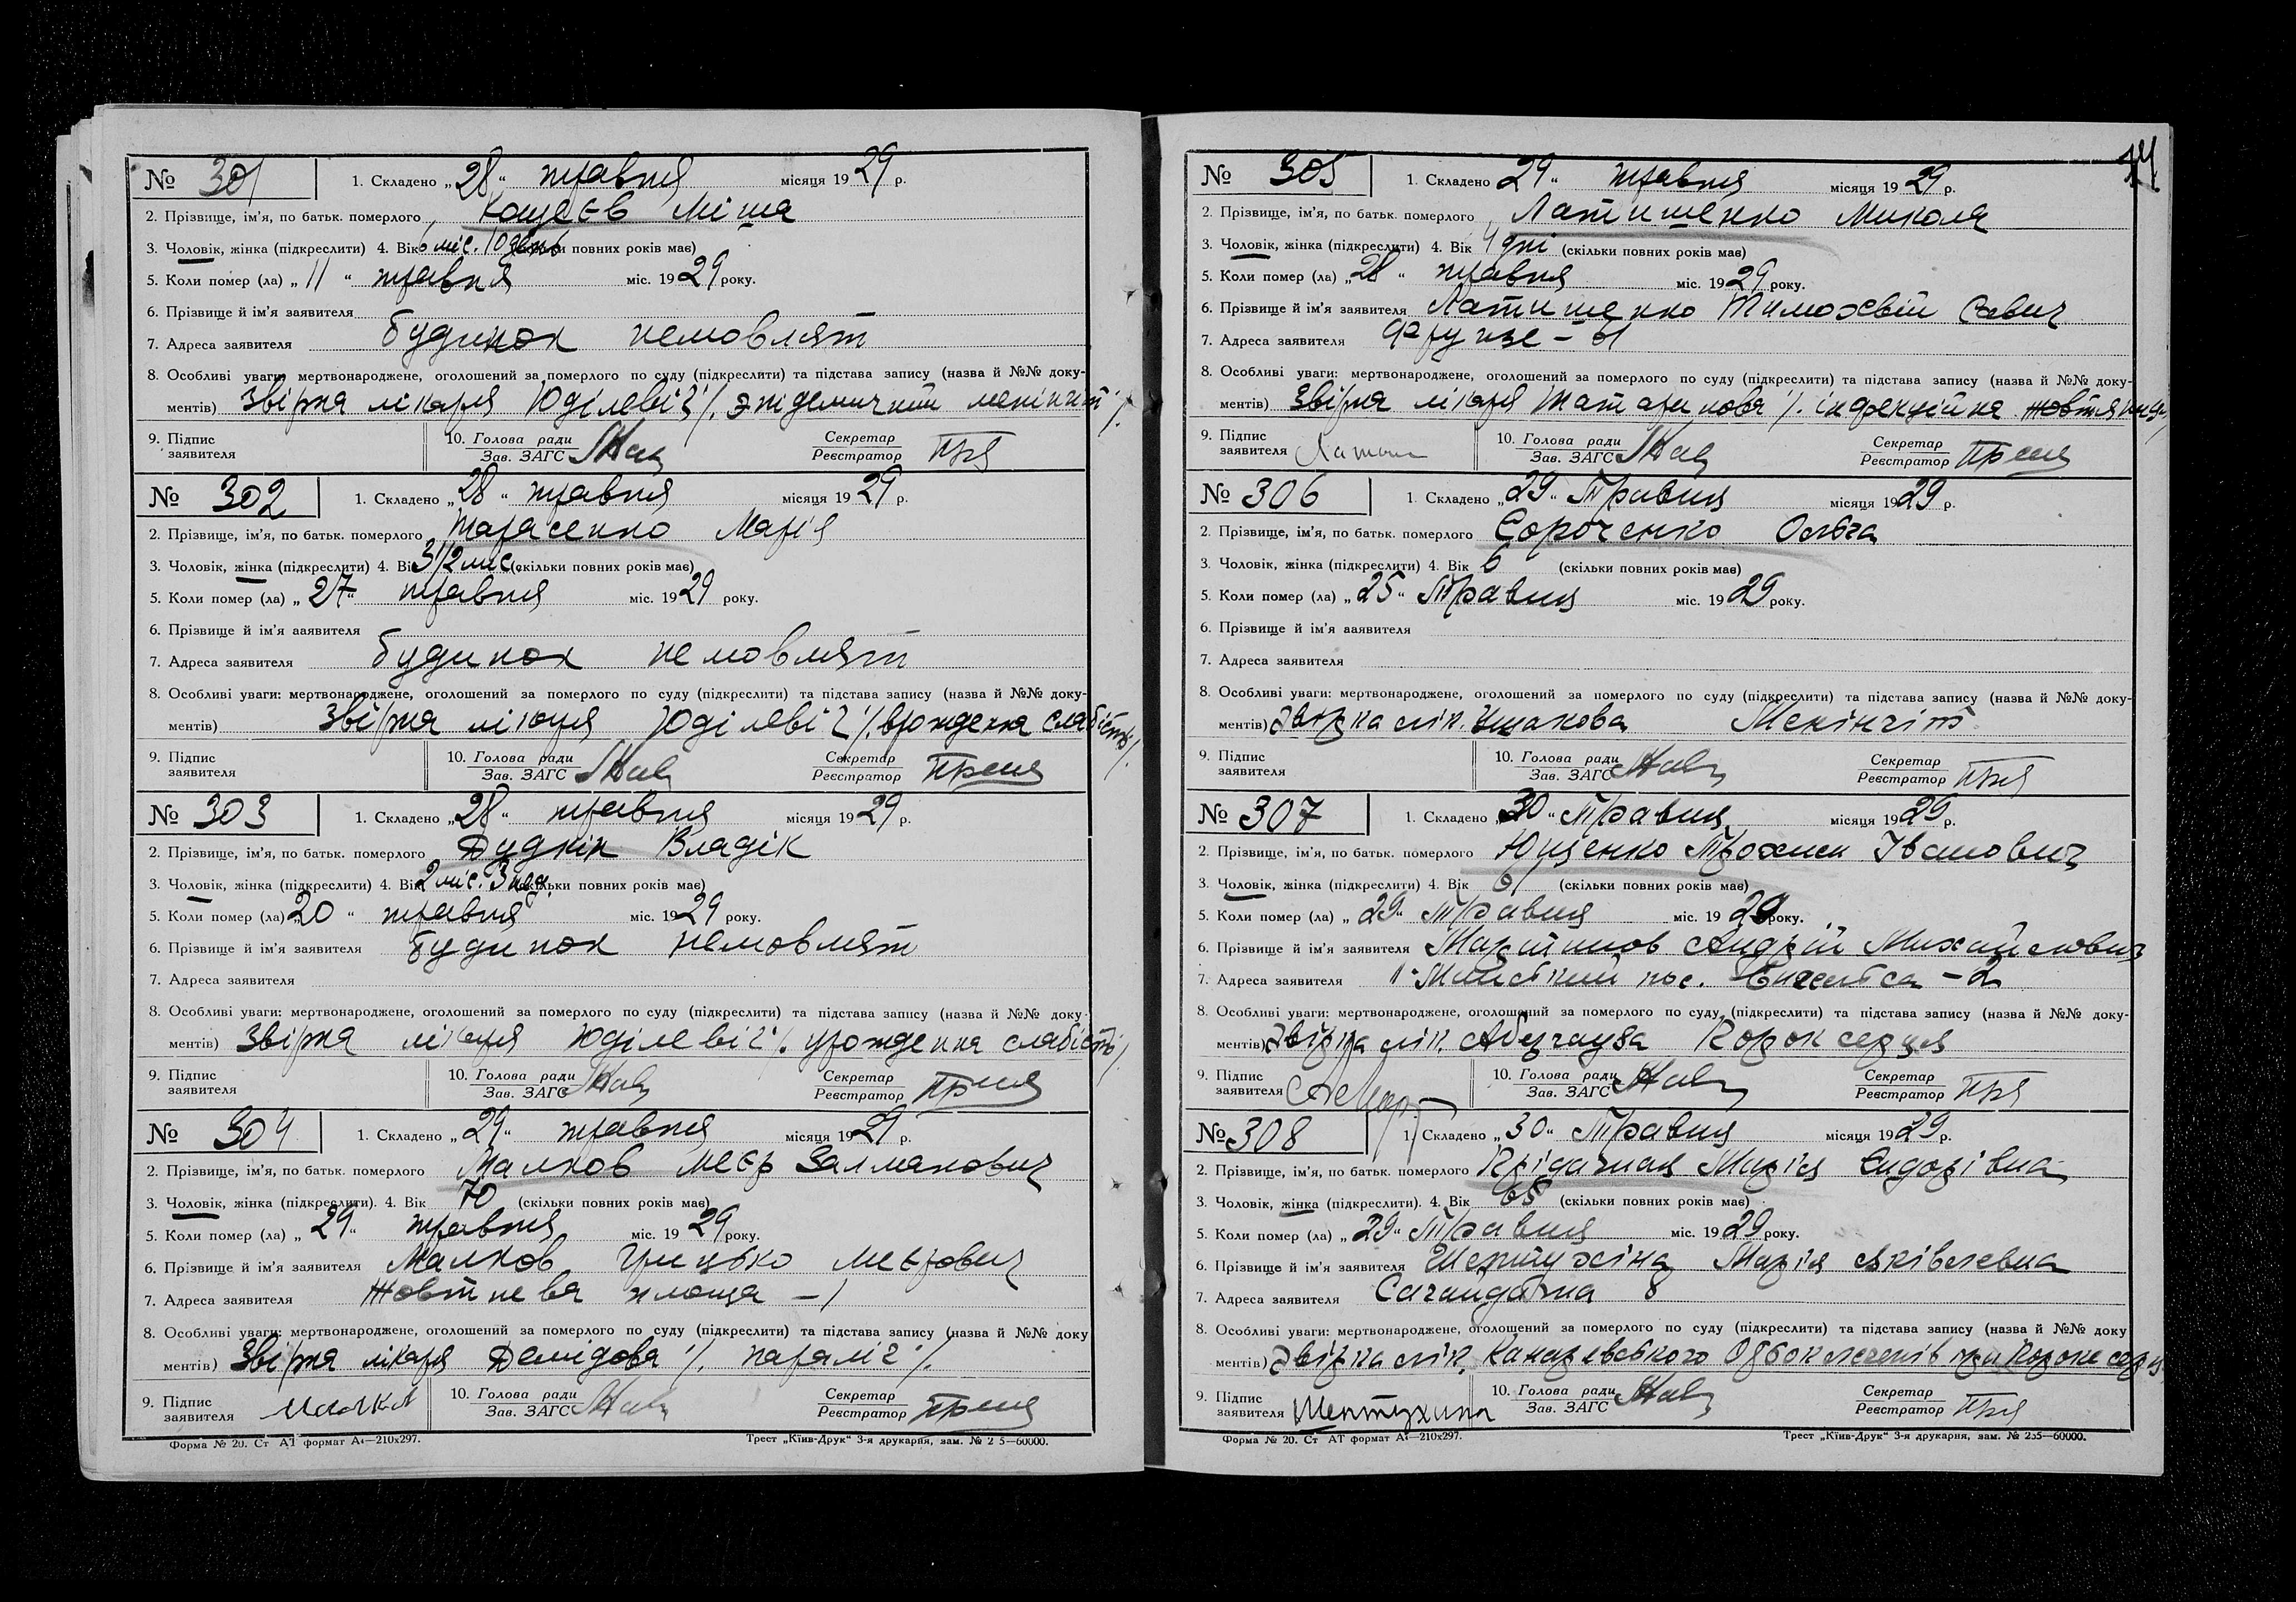 № 301 1. Складено „28“ травня місяця 1929 р.
2. Прізвище, ім’я, по батьк. померлого Кощеєв Міша
3. Чоловік, жінка (підкреслити) 4. Вік 6 міс. 10 день повних років має)
5. Коли помер (ла) „11“ травня міс. 1929 року.
6. Прізвище й ім’я заявителя
7. Адреса заявителя будинок немовлят
8. Особливі уваги: мертвонароджене, оголошений за померлого по суду (підкреслити) та підстава запису (назва й №№ доку-
ментів) Звірка лікаря Юділевіч /. эпідемичний менінгіт /.
9. Підпис заявителя 10. Голова ради Зав. ЗАГС Секретар Реєстратор
№ 302 1. Складено „28“ травня місяця 1929 р.
2. Прізвище, ім’я, по батьк. померлого Тарасенко Марія
3. Чоловік, жінка (підкреслити) 4. Вік 3 1/2 міс. (скільки повних років має)
5. Коли помер (ла) „27“ травня міс. 1929 року.
6. Прізвище й ім’я заявителя
7. Адреса заявителя будинок немовлят
8. Особливі уваги: мертвонароджене, оголошений за померлого по суду (підкреслити) та підстава запису (назва й №№ доку-
ментів) Звірка лікаря Юділевіч /. врождення слабість /.
9. Підпис заявителя 10. Голова ради Зав. ЗАГС Секретар Реєстратор
№ 303 1. Складено „28“ травня місяця 1929 р.
2. Прізвище, ім’я, по батьк. померлого Дудкін Владік
3. Чоловік, жінка (підкреслити) 4. Вік 2 міс. 3 нед. повних років має)
5. Коли помер (ла) „20“ травня міс. 1929 року.
6. Прізвище й ім’я заявителя будинок немовлят
7. Адреса заявителя
8. Особливі уваги: мертвонароджене, оголошений за померлого по суду (підкреслити) та підстава запису (назва й №№ доку-
ментів) Звірка лікаря Юділевіч /. урождення слабість /.
9. Підпис заявителя 10. Голова ради Зав. ЗАГС Секретар Реєстратор
№ 304 1. Складено „29“ травня місяця 1929 р.
2. Прізвище, ім’я, по батьк. померлого Малков Меєр Залманович
3. Чоловік, жінка (підкреслити). 4. Вік 70 (скільки повних років має)
5. Коли помер (ла) „29“ травня міс. 1929 року.
6. Прізвище й ім’я заявителя Малков Грицько Меєрович
7. Адреса заявителя Жовтнева площа – 1
8. Особливі уваги: мертвонароджене, оголошений за померлого по суду (підкреслити) та підстава запису (назва й №№ доку
ментів) Звірка лікаря Демідова /. параліч /.
9. Підпис заявителя 10. Голова ради Зав. ЗАГС Секретар Реєстратор
Форма № 20. Ст АТ формат А4—210х297. Трест „Київ-Друк“ 3-я друкарня, зам. № 2 5—60000.
№ 305 1. Складено 29“ травня місяця 1929 р.
2. Прізвище, ім’я, по батьк. померлого Латишенко Микола
3. Чоловік, жінка (підкреслити) 4. Вік 4 дні (скільки повних років має)
5. Коли помер (ла) „28“ травня міс. 1929 року.
6. Прізвище й ім’я заявителя Латишенко Тимохвій Савич
7. Адреса заявителя Фрунзе – 61
8. Особливі уваги: мертвонароджене, оголошений за померлого по суду (підкреслити) та підстава запису (назва й №№ доку-
ментів) Звірка лікаря Татаринова /. інфекційна жовтяниця /
9. Підпис заявителя 10. Голова ради Зав. ЗАГС Секретар Реєстратор
№ 306 1. Складено „29“ Травня місяця 1929 р.
2. Прізвище, ім’я, по батьк. померлого Сороченко Ольга
3. Чоловік, жінка (підкреслити) 4. Вік 6 (скільки повних років має)
5. Коли помер (ла) „25“ Травня міс. 1929 року.
6. Прізвище й ім’я заявителя
7. Адреса заявителя
8. Особливі уваги: мертвонароджене, оголошений за померлого по суду (підкреслити) та підстава запису (назва й №№ доку-
ментів) Звірка лік. Ушакова Менінгіт
9. Підпис заявителя 10. Голова ради Зав. ЗАГС Секретар Реєстратор
№ 307 1. Складено „30“ Травня місяця 1929 р.
2. Прізвище, ім’я, по батьк. померлого Ющенко Трохим Іванович
3. Чоловік, жінка (підкреслити) 4. Вік (скільки повних років має)
5. Коли помер (ла) „29“ Травня міс. 1929 року.
6. Прізвище й ім’я заявителя Мартинов Андрій Михайлович
7. Адреса заявителя пос. – 2
8. Особливі уваги: мертвонароджене, оголошений за померлого по суду (підкреслити) та підстава запису (назва й №№ доку-
ментів) Звірка лік. Абергауза Корок серця
9. Підпис заявителя 10. Голова ради Зав. ЗАГС Секретар Реєстратор
№ 308 1. Складено „30“ Травня місяця 1929 р.
2. Прізвище, ім’я, по батьк. померлого Марія Сидорівна
3. Чоловік, жінка (підкреслити). 4. Вік 65 (скільки повних років має)
5. Коли помер (ла) „29“ Травня міс. 1929 року.
6. Прізвище й ім’я заявителя Шептухіна Марія Яківлевна
7. Адреса заявителя 8
8. Особливі уваги: мертвонароджене, оголошений за померлого по суду (підкреслити) та підстава запису (назва й №№ доку
ментів) Звірка лік. Канаревського
9. Підпис заявителя Шептухина 10. Голова ради Зав. ЗАГС Секретар Реєстратор
Форма № 20. Ст АТ формат А4—210х297. Трест „Київ-Друк“ 3-я друкарня, зам. № 235—60000.